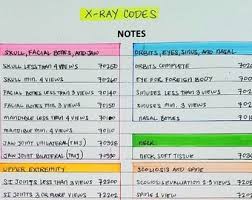 X-RAY CODES
NOTES
SKULL, FACIAL BONES, AND JAW
SKULL LESS THAN 4 VIEWS 70250
SKULL MIN. 4 VIEWS 70260
FACIAL BONES LESS THAN 3 VIEWS 70140
FACIAL BONES MIN. 3 VIEWS 70150
MANDIBLE LESS THAN 4 VIEWS 70100
MANDIBLE MIN. 4 VIEWS 70110
JAW JOINT UNILATERAL (TMJ) 70328
JAW JOINT BILATERAL (TMJ) 70330
UPPER EXTREMITY
SI JOINTS LESS THAN 3 VIEWS 72200
SI JOINTS MIN. 3 VIEWS 72202
ORBITS, EYES, SINUS, AND NASAL
ORBITS COMPLETE
EYE FOR FOREIGN BODY
SINUSES LESS THAN 3 VIEWS
SINUSES MIN. 3 VIEWS
NASAL BONES
NECK
NECK SOFT TISSUE
SCOLIOSIS AND SPINE
SCOLIOSIS EVALUATION 2-3 VIEWS
SPINE 1 VIEW